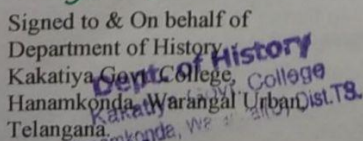 Signed to & On behalf of
Department of History,
Kakatiya Govt. College,
Hanamkonda, Warangal Urban,
Telangana.
Dept. of History
Kakatiya Govt. College
Dist.T.S.